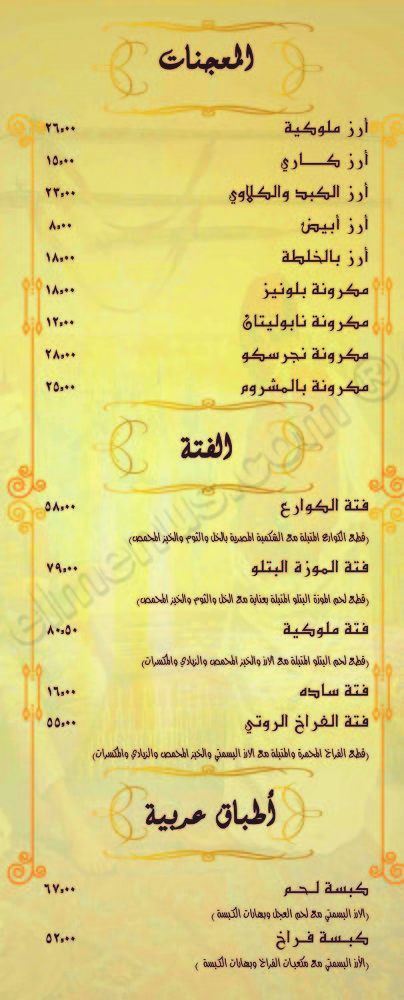 المعجنات
أرز ملوكية ٢٦,٠٠
أرز كـــاري ١٥,٠٠
أرز الكبد والكلاوي ٢٣,٠٠
أرز أبيض ٨,٠٠
أرز بالخلطة ١٨,٠٠
مكرونة بلونيز ١٨,٠٠
مكرونة نابوليتان ١٢,٠٠
مكرونة نجرسكو ٢٨,٠٠
مكرونة بالمشروم ٢٥,٠٠
الفتة
فتة الكوارع ٥٨,٠٠
(قطع الكوارع المتبلة مع الشكمبة المصرية بالخل والثوم والخبز المحمص)
فتة الموزة البتلو ٧٩,٠٠
(قطع لحم الموزة البتلو المتبلة بعناية مع الخل والثوم والخبز المحمص)
فتة ملوكية ٨٠,٥٠
(قطع لحم البتلو المتبلة مع الارز والخبز المحمص والزبادي والمكسرات)
فتة ساده ١٦,٠٠
فتة الفراخ الروتي ٥٥,٠٠
(قطع الفراخ المحمرة والمتبلة مع الارز البسمتي والخبز المحمص والزبادي والمكسرات)
أطباق عربية
كبسة لحم ٦٧,٠٠
(الارز البسمتي مع لحم العجل وبهارات الكبسة )
كبسة فراخ ٥٢,٠٠
(الأرز البسمتي مع مكعبات الفراخ وبهارات الكبسة )
elmenus.com ®